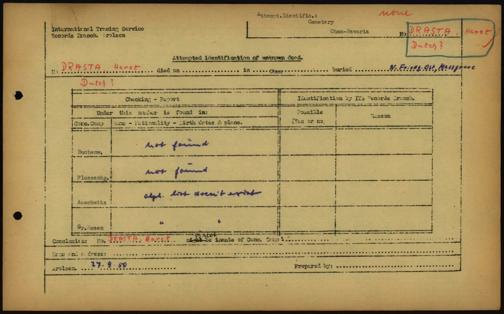 Attempt.Identific.:
none
Cemetery
International Tracing Service
Records Branch. Arolsen
Cham-Bavaria
No. DRASTA Horst
Dutch?
Attempted identification of unknown dead.
No. DRASTA Horst died on in Cham buried
Dutch?
Checking - Report
Identification by ITS Records Branch.
Under this number is found in:
Possible
(Yes or no
Reason
Conc.Camp
Name - Nationality - Birth dates & place.
Buchenw.
not found
Flossenbg.
not found
Auschwitz
alph. list doesn't exist
Gr.Rosen
" "
Conclusion: No. DRASTA Horst might be inmate of Conc. Camp
Arolsen. 27.9.50
Prepared by: